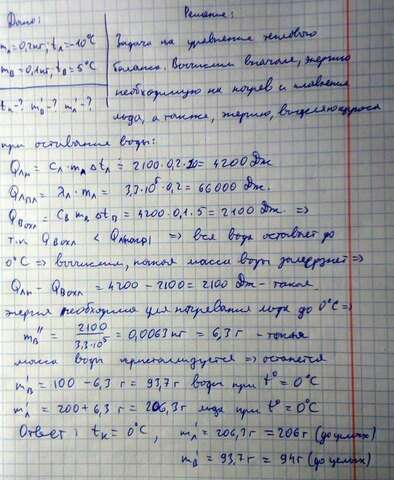 Дано:
Решение:
mл=0,2 кг; tл=-10°C
mв=0,1 кг; tв=5°C
tк-? mв-? mл-?
Задача на уравнение теплового
баланса. Вычислим вначале, энергию
необходимую на погрев и плавление
льда, а также, энергию, выделяющуюся
при остывание воды:
Qлн = cл·mл Δtл = 2100·0,2·10 = 4200 Дж
Qлпл = λл·mл = 3,3·10⁵·0,2 = 66000 Дж.
Qвохл = cв mл Δtв = 4200·0,1·5 = 2100 Дж. ⇒
т.к. Qвохл < Qлнагр ⇒ вся вода остывает до
0°C ⇒ вычислим, какая масса воды замерзнет ⇒
Qлн - Qвохл = 4200 - 2100 = 2100 Дж - такая
энергия необходима для погревания льда до 0°C ⇒
mв'' = 2100/3.3·10⁵ = 0,0063 кг = 6,3 г - такая
масса воды кристаллизуется ⇒ останется
mв = 100 - 6,3 г = 93,7 г воды при t° = 0°C
mл = 200 + 6,3 г = 206,3 г льда при t° = 0°C
Ответ: tк = 0°C, mл' = 206,3 г = 206 г (до целых)
mв' = 93,7 г = 94 г (до целых)